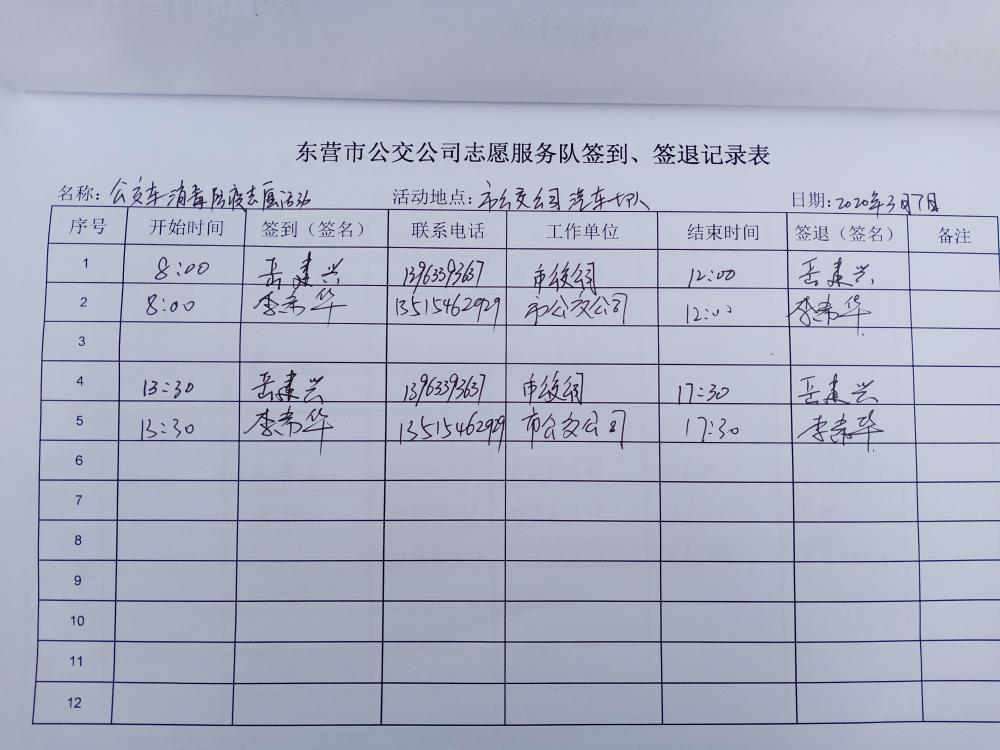 东营市公交公司志愿服务队签到、签退记录表
名称：公交车消毒防疫志愿活动 活动地点：市公交公司汽车 日期：2020年3月7日
序号 开始时间 签到（签名） 联系电话 工作单位 结束时间 签退（签名） 备注
1 8:00 岳建兴 13963393637 市公交公司 12:00 岳建兴
2 8:00 李希华 13515462929 市公交公司 12:00 李希华
3
4 13:30 岳建兴 13963393637 市公交公司 17:30 岳建兴
5 13:30 李希华 13515462929 市公交公司 17:30 李希华
6
7
8
9
10
11
12